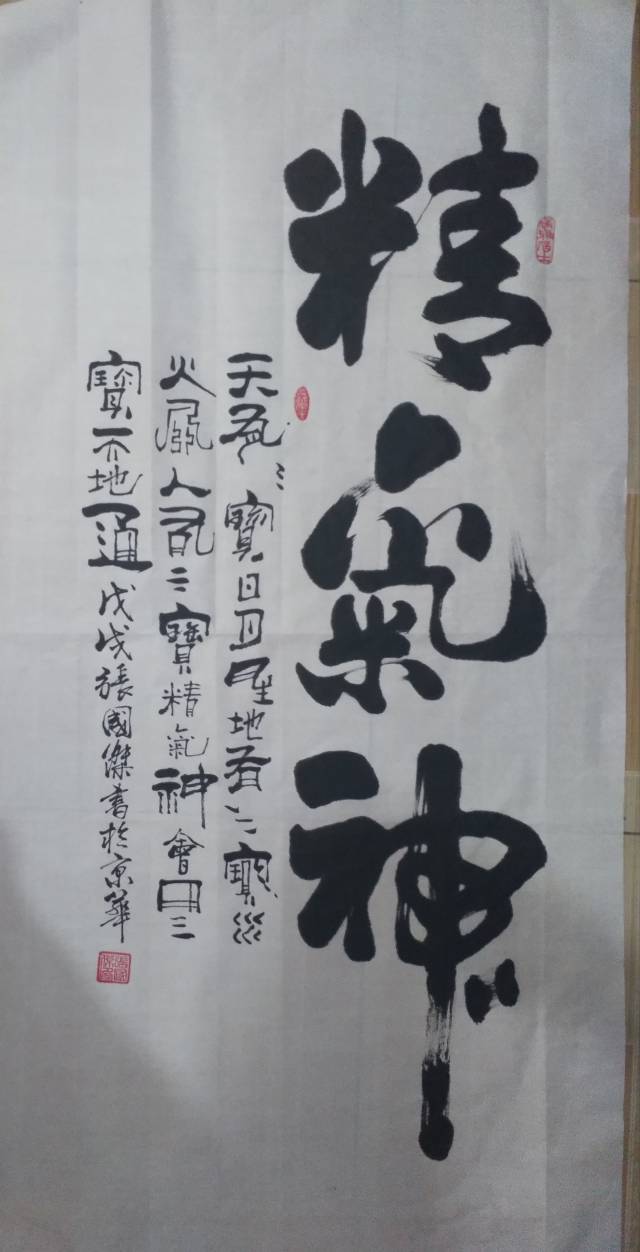 精氣神
天有三寶日月星地有三寶水
火風人有三寶精氣神會用三
寶天地通戊戌張國傑書於京華